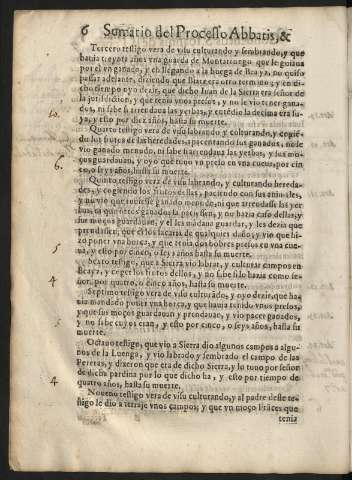 6 Sumario del Processo Abbatis, &
Tercero testigo vera de visu culturando y sembrando, y que
hauia treynta años vna guarda de Montañongo que le guiaua
por el en ganado, y en llegando a la huega de Biaya, no quiso
passar adelante, diziendo que Biaya era otro termino, y en di-
cho tiempo oyo dezir, que dicho Iuan de la Sierra era señor de
la jurisdicion, y que tenia vnos presos, y no le vio tener gana-
dos, ni sabe si arrendaua las yerbas, y cogédio la decima era su-
10. ya, y esto por diez años, hasta su muerte.
Quarto testigo vera de visu labrando y culturando, y cogié-
do los frutos de las heredades, apacentando sus ganados, no le
vio ganado menudo, ni sabe si arrendaua las yerbas, y sus mo-
ços guardauan, y oyo que tuuo vn preso en vna cueua, por cin
6. co, o seys años, hasta su muerte.
Quinto testigo vera de visu labrando, y culturando hereda-
des, y cogiendo los frutos dellas, paciendo con sus animales,
y no vio que tuuiesse ganado menudo, ni que arrendasse las yer
bas, ni que otros ganados la paciessen, y no hazia caso dellas, y
sus moços guardauan, y el les mãdaua guardar, y les dezia que
prendassen; que el los sacaria de qualquier daño, y vio que hi-
zo poner vna horca, y que tenia dos pobres presos en vna cue-
5 ua, y esto por cinco, o seys años hasta su muerte.
Sexto testigo, que a Sierra vio labrar, y culturar campos en
Beaya, y coger los frutos dellos, y no sabe si lo hazia como se-
4 ñor, por quatro, o cinco años, hasta su muerte.
Septimo testigo vera de visu culturando, y oyo dezir, que ha-
uia mandado poner vna horca, y que hauia tenido vnos presos,
y que sus moços guardauan y prendauan, y vio pacer ganados,
5 y no sabe cuyos eran, y esto por cinco, o seys años, hasta su
muerte.
Octauo testigo, que vio a Sierra dio algunos campos a algu-
nos de la Luenga, y vio labrado y sembrado el campo de las
Peretas, y dixeron que era de dicho Sierra, y lo tuuo por señor
de dicha pardina por lo que dicho ha, y esto por tiempo de
4 quatro años, hasta su muerte.
Noueno testigo vera de visu culturando, y al padre deste tes-
tigo le dio a terraje vnos campos, y que vn moço Frãces que
tenia